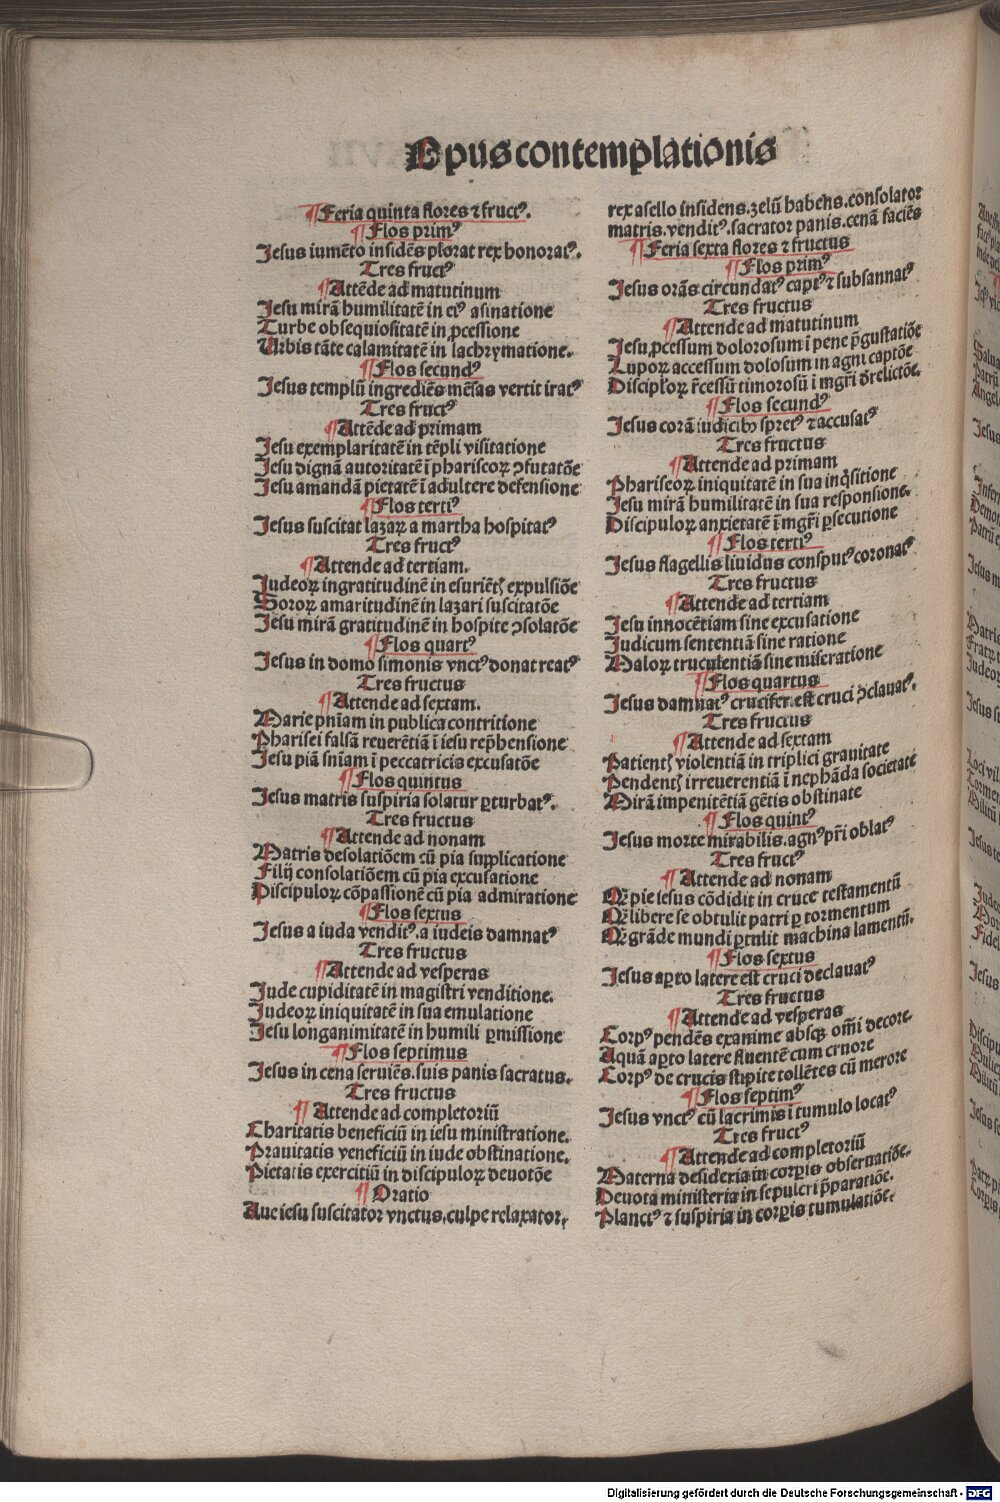 Opus contemplationis
¶ Feria quinta flores ⁊ fructꝰ.
¶ Flos primꝰ
Jesus iumẽto insidẽs plorat rex honoratꝰ.
Tres fructꝰ
¶ Attẽde ad matutinum
Jesu mirã humilitatẽ in eiꝰ asinatione
Turbe obsequiositatẽ in ꝓcessione
Urbis tãte calamitatẽ in lachrymatione.
¶ Flos secundꝰ
Jesus templũ ingrediẽs mẽsas vertit iratꝰ
Tres fructꝰ
¶ Attẽde ad primam
Jesu exemplaritatẽ in tẽpli visitatione
Jesu dignã autoritatẽ ĩ phariseoꝝ ꝯfutatõe
Jesu amandã pietatẽ ĩ adultere defensione
¶ Flos tertiꝰ
Jesus suscitat lazaꝝ a martha hospitatꝰ
Tres fructꝰ
¶ Attende ad tertiam.
Judeoꝝ ingratitudinẽ in esuriẽtꝭ expulsiõe
Soroꝝ amaritudinẽ in lazari suscitatõe
Jesu mirã gratitudinẽ in hospite ꝯsolatõe
¶ Flos quartꝰ
Jesus in domo simonis vnctꝰ donat reatꝰ
Tres fructus
¶ Attende ad sextam.
Marie pniam in publica contritione
Pharisei falsã reuerẽtiã ĩ iesu rep̃hensione
Jesu piã sniam ĩ peccatricis excusatõe
¶ Flos quintus
Jesus matris suspiria solatur ꝑturbatꝰ.
Tres fructus
¶ Attende ad nonam
Matris desolatiõem cũ pia supplicatione
Filij consolatiõem cũ pia excusatione
Discipuloꝝ cõpassionẽ cũ pia admiratione
¶ Flos sextus
Jesus a iuda venditꝰ.a iudeis damnatꝰ
Tres fructus
¶ Attende ad vesperas
Jude cupiditatẽ in magistri venditione.
Judeoꝝ iniquitatẽ in sua emulatione
Jesu longanimitatẽ in humili ꝑmissione
¶ Flos septimus
Jesus in cena seruiẽs.suis panis sacratus.
Tres fructus
¶ Attende ad completoriũ
Charitatis beneficiũ in iesu ministratione.
Prauitatis veneficiũ in iude obstinatione.
Pietatis exercitiũ in discipuloꝝ deuotõe
¶ Oratio
Aue iesu suscitator vnctus.culpe relaxator,
rex asello insidens.zelũ habens.consolator
matris.venditꝰ.sacrator panis.cenã faciẽs
¶ Feria sexta flores ⁊ fructus
¶ Flos primꝰ
Jesus orãs circundatꝰ captꝰ ⁊ subsannatꝰ
Tres fructus
¶ Attende ad matutinum
Jesu ꝓcessum dolorosum ĩ pene p̃gustatiõe
Lupoꝝ accessum dolosum in agni captõe
Discipl'oꝝ r̃cessũ timorosũ ĩ mgr̃i d̃relictõe.
¶ Flos secundꝰ
Jesus corã iudicibꝫ spretꝰ ⁊ accusatꝰ
Tres fructus
¶ Attende ad primam
Phariseoꝝ iniquitatẽ in sua inq̃sitione
Jesu mirã humilitatẽ in sua responsione.
Discipuloꝝ anxietatẽ ĩ mgr̃i ꝑsecutione
¶ Flos tertiꝰ
Jesus flagellis liuidus consputꝰ coronatꝰ
Tres fructus
¶ Attende ad tertiam
Jesu innocẽtiam sine excusatione
Judicum sententiã sine ratione
Maloꝝ truculentiã sine miseratione
¶ Flos quartus
Jesus damnatꝰ crucifer est cruci ꝯclauatꝰ.
Tres fructus
¶ Attende ad sextam
Patientꝭ violentiã in triplici grauitate
Pendentꝭ irreuerentiã ĩ nephãda societate
Mirã impenitẽtiã gẽtis obstinate
¶ Flos quintꝰ
Jesus morte mirabilis.agnꝰ pr̃i oblatꝰ
Tres fructꝰ
¶ Attende ad nonam
Qꝫ pie iesus cõdidit in cruce testamentũ
Qꝫ libere se obtulit patri ꝑ tormentum
Qꝫ grãde mundi ꝑtulit machina lamentũ.
¶ Flos sextus
Jesus aꝑto latere est cruci declauatꝰ
Tres fructus
¶ Attende ad vesperas
Corpꝰ pendẽs exanime absqꝫ omĩ decore.
Aquã aꝑto latere fluentẽ cum cruore
Corpꝰ de crucis stipite tollẽtes cũ merore
¶ Flos septimꝰ
Jesus vnctꝰ cũ lacrimis ĩ tumulo locatꝰ
Tres fructꝰ
¶ Attende ad completoriũ
Materna desideria in corꝑis obseruatiõe.
Deuota ministeria in sepulcri p̃paratiõe.
Planctꝰ ⁊ suspiria in corꝑis tumulatiõe.
Digitalisierung gefördert durch die Deutsche Forschungsgemeinschaft - DFG